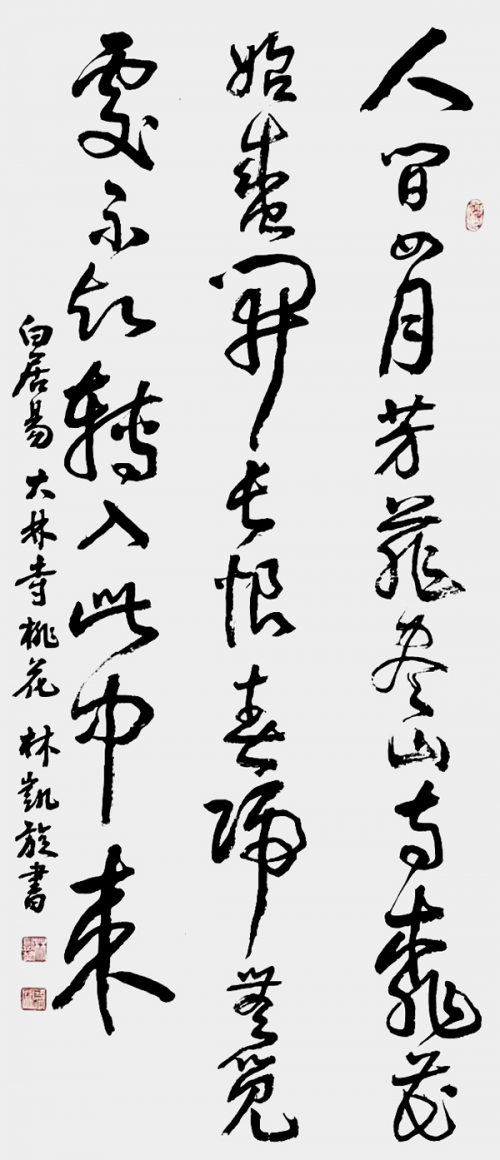 人間四月芳菲盡山寺桃花
始盛開長恨春歸無覓
處不知轉入此中來
白居易 大林寺桃花 林凱旋書